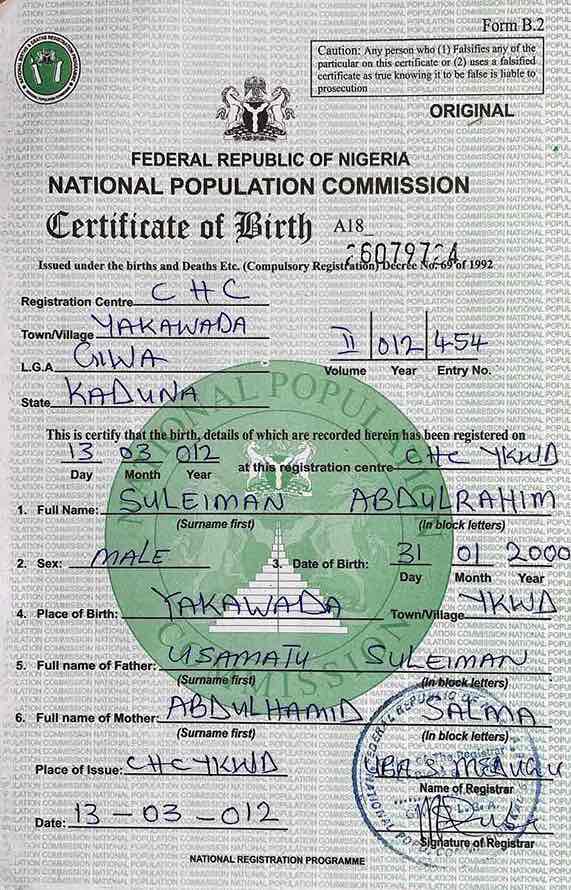 Form B.2
Caution: Any person who (1) Falsifies any of the
particular on this certificate or (2) uses a falsified
certificate as true knowing it to be false is liable to
prosecution
ORIGINAL
FEDERAL REPUBLIC OF NIGERIA
NATIONAL POPULATION COMMISSION
Certificate of Birth A18_
Issued under the births and Deaths Etc. (Compulsory Registration) Decree No. 69 of 1992
Registration Centre CHC
Town/Village YAKAWADA
L.G.A GIWA
II 012 454
Volume Year Entry No.
State KADUNA
This is certify that the birth, details of which are recorded herein has been registered on
13 03 012 at this registration centre CHC YKWD
Day Month Year
1. Full Name: SULEIMAN ABDULRAHIM
(Surname first) (In block letters)
2. Sex: MALE 3. Date of Birth: 31 01 2000
Day Month Year
4. Place of Birth: YAKAWADA Town/Village YKWD
5. Full name of Father: USAMATU SULEIMAN
(Surname first) (In block letters)
6. Full name of Mother: ABDULHAMID SALMA
(Surname first) (In block letters)
Place of Issue: CHC YKWD
Name of Registrar
Date: 13-03-012
Signature of Registrar
NATIONAL REGISTRATION PROGRAMME
NATIONAL POPULATION
COMMISSION